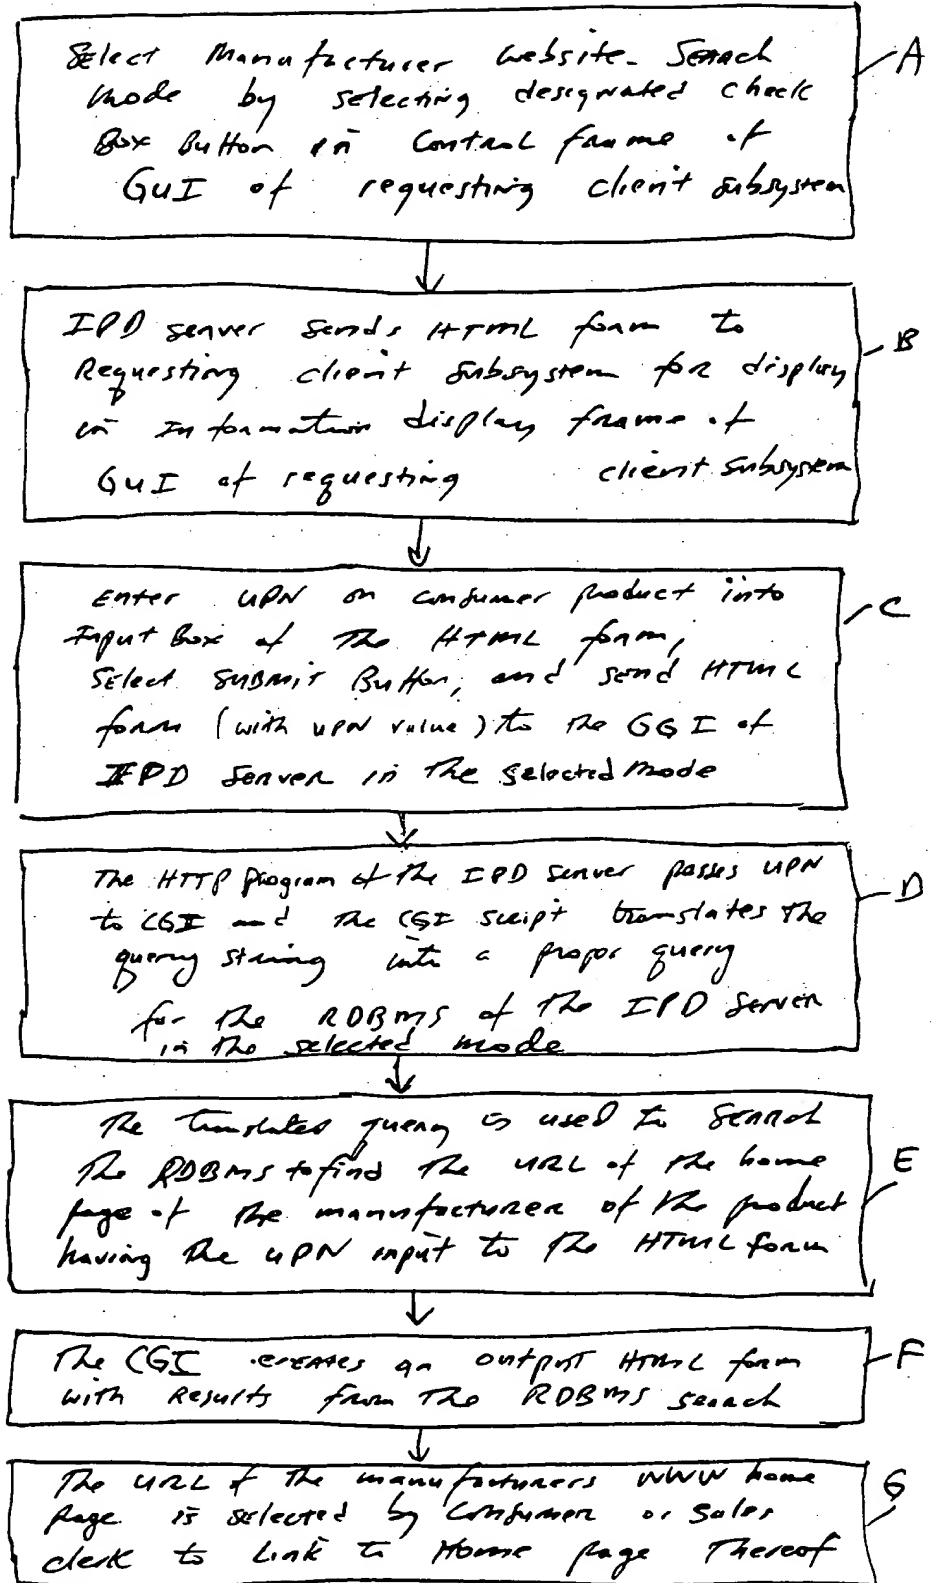 Select Manufacturer Website-Search
Mode by selecting designated check
Box Button in Control frame of
GUI of requesting client subsystem
A
IPD server sends HTML form to
Requesting client subsystem for display
in Information display frame of
GUI of requesting client subsystem
B
Enter UPN on consumer product into
Input Box of the HTML form,
Select SUBMIT Button, and send HTML
form (with UPN value) to the GGI of
IPD Server in the selected mode
C
The HTTP program of the IPD server passes UPN
to CGI and the CGI script translates the
query string into a propor query
for the RDBMS of the IPD Server
in the selected mode
D
The translated query is used to Search
the RDBMS to find the URL of the home
page of the manufacturer of the product
having the UPN input to the HTML form
E
The CGI creates an output HTML form
with Results from the RDBMS search
F
The URL of the manufacturers WWW home
Page is selected by Consumer or Sales
clerk to Link to Home page Thereof
G